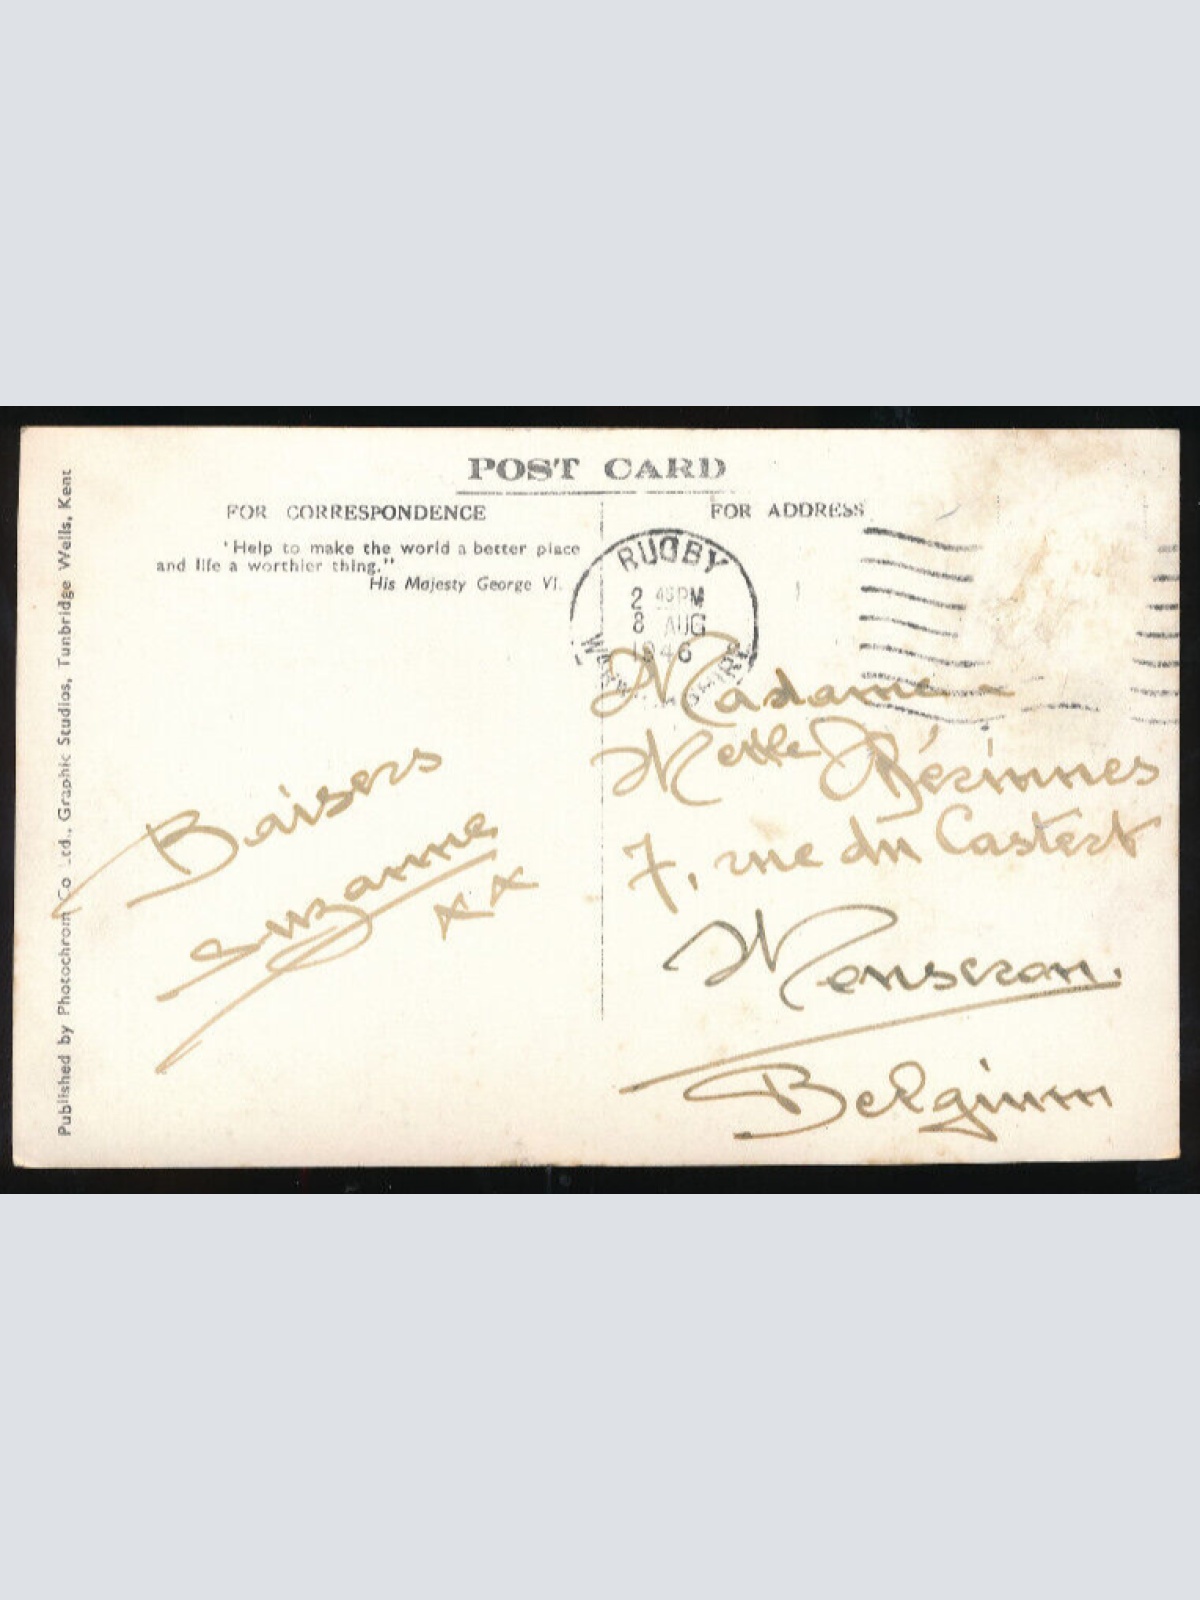 POST CARD
FOR CORRESPONDENCE
FOR ADDRESS
"Help to make the world a better place
and life a worthier thing."
His Majesty George VI.
RUGBY
2 45 PM
8 AUG
1946
Madame
Melle
7, rue du Castert
Mouscron.
Belgium
Baisers
Suzanne
xx
Published by Photochrom Co. Ltd., Graphic Studios, Tunbridge Wells, Kent